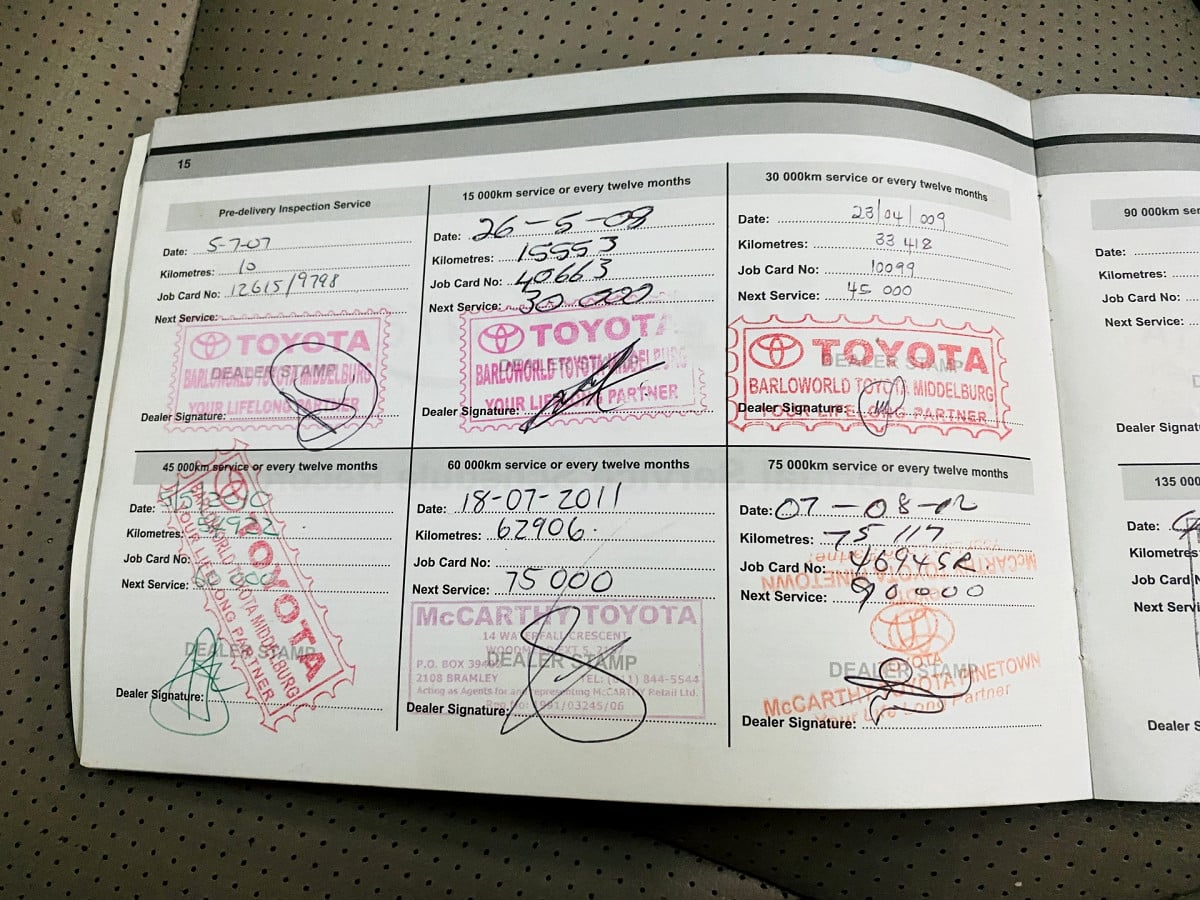 15
Pre-delivery Inspection Service
Date: 5-7-07
Kilometres: 10
Job Card No: 12615/9798
Next Service:
TOYOTA
BARLOWORLD TOYOTA MIDDELBURG
DEALER STAMP
YOUR LIFELONG PARTNER
Dealer Signature:
15 000km service or every twelve months
Date: 26-5-08
Kilometres: 15553
Job Card No: 40663
Next Service: 30 000
TOYOTA
DEALER STAMP
BARLOWORLD TOYOTA MIDDELBURG
YOUR LIFELONG PARTNER
Dealer Signature:
30 000km service or every twelve months
Date: 23/04/009
Kilometres: 33 418
Job Card No: 10099
Next Service: 45 000
TOYOTA
DEALER STAMP
BARLOWORLD TOYOTA MIDDELBURG
YOUR LIFELONG PARTNER
Dealer Signature:
45 000km service or every twelve months
Date: 5/5/2010
Kilometres:
Job Card No:
Next Service: 60 000
TOYOTA
BARLOWORLD TOYOTA MIDDELBURG
YOUR LIFELONG PARTNER
DEALER STAMP
Dealer Signature:
60 000km service or every twelve months
Date: 18-07-2011
Kilometres: 62906.
Job Card No:
Next Service: 75000
McCARTHY TOYOTA
14 WATERFALL CRESCENT
DEALER STAMP
P.O. BOX
2108 BRAMLEY TEL: (011) 844-5544
Acting as Agents for and representing McCARTHY Retail Ltd.
Reg No: 1991/03245/06
Dealer Signature:
75 000km service or every twelve months
Date: 07-08-12
Kilometres: 75 117
Job Card No: 46945R
Next Service: 90000
McCARTHY TOYOTA PINETOWN
DEALER STAMP
TOYOTA
McCARTHY TOYOTA PINETOWN
Your Life Long Partner
Dealer Signature:
90 000km ser
Date:
Kilometres:
Job Card No:
Next Service:
Dealer Signat
135 000
Date:
Kilometres
Job Card N
Next Servi
Dealer S